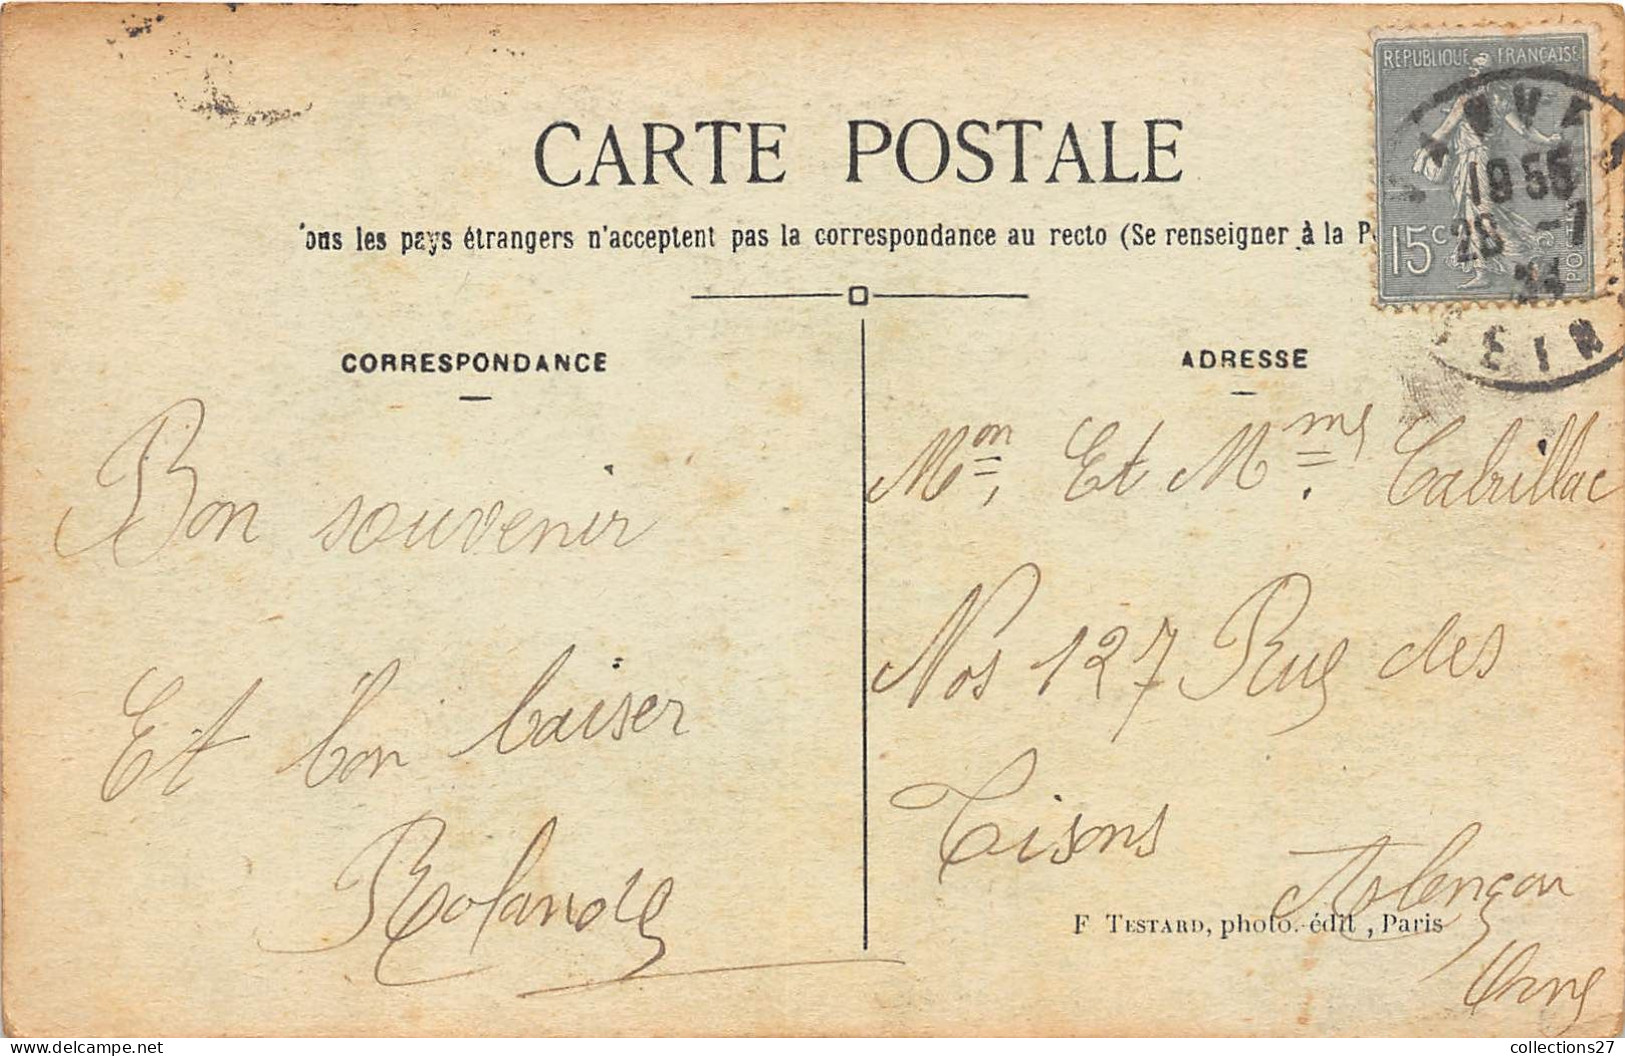 CARTE POSTALE
ous les pays étrangers n'acceptent pas la correspondance au recto (Se renseigner à la P
REPUBLIQUE FRANÇAISE
15c
1955
28 -7
33
CORRESPONDANCE
Bon souvenir
Et bon baiser
Rolande
ADRESSE
Mon, Et Mme. Cabrillac
Nos 127 Rue des
Tisons
Alençon
Orne
F TESTARD, photo.-édit, Paris
collections27